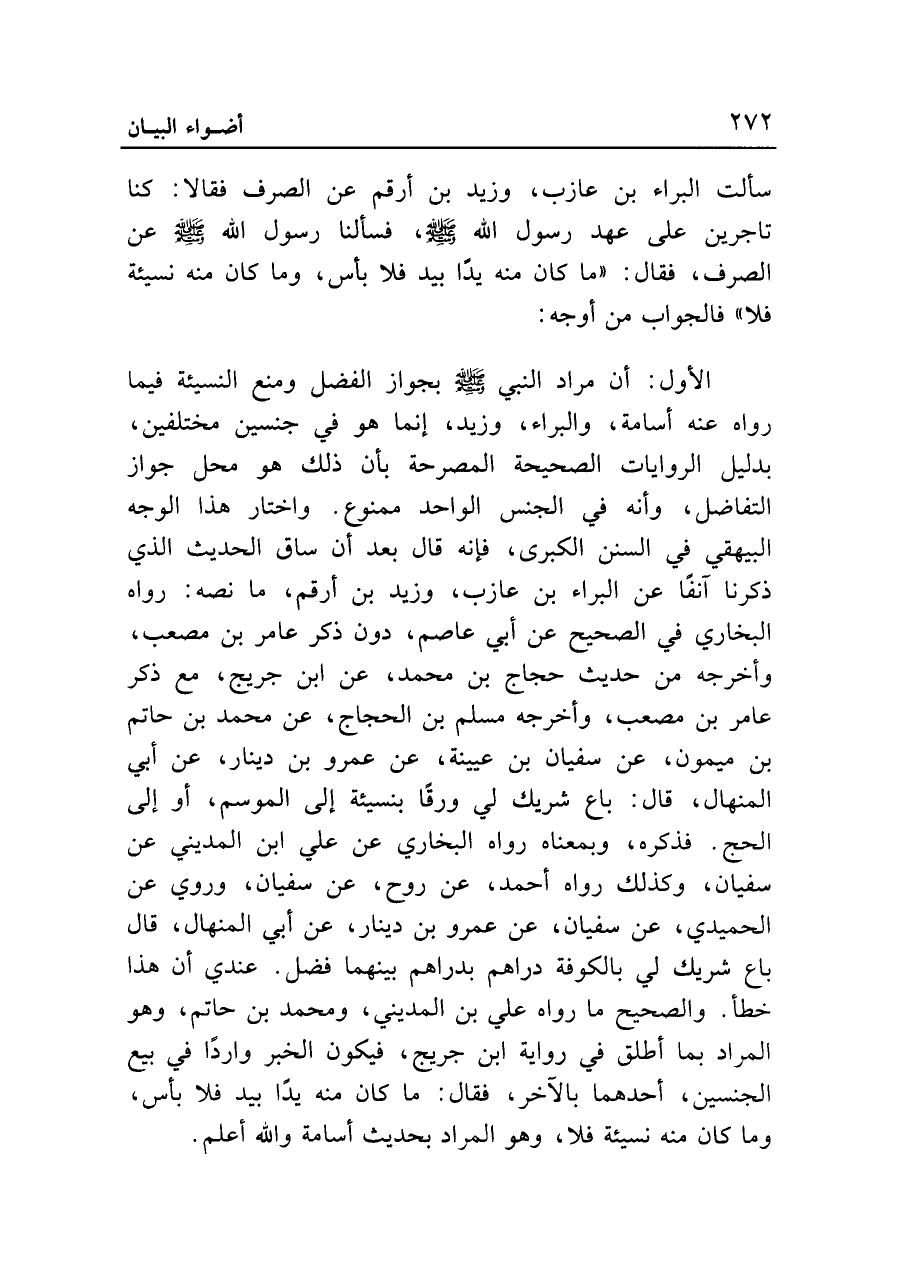 ٢٧٢ أضـواء البيـان
سألت البراء بن عازب، وزيد بن أرقم عن الصرف فقالا: كنا
تاجرين على عهد رسول الله ﷺ، فسألنا رسول الله ﷺ عن
الصرف، فقال: «ما كان منه يدًا بيد فلا بأس، وما كان منه نسيئة
فلا» فالجواب من أوجه:
الأول: أن مراد النبي ﷺ بجواز الفضل ومنع النسيئة فيما
رواه عنه أسامة، والبراء، وزيد، إنما هو في جنسين مختلفين،
بدليل الروايات الصحيحة المصرحة بأن ذلك هو محل جواز
التفاضل، وأنه في الجنس الواحد ممنوع. واختار هذا الوجه
البيهقي في السنن الكبرى، فإنه قال بعد أن ساق الحديث الذي
ذكرنا آنفًا عن البراء بن عازب، وزيد بن أرقم، ما نصه: رواه
البخاري في الصحيح عن أبي عاصم، دون ذكر عامر بن مصعب،
وأخرجه من حديث حجاج بن محمد، عن ابن جريج، مع ذكر
عامر بن مصعب، وأخرجه مسلم بن الحجاج، عن محمد بن حاتم
بن ميمون، عن سفيان بن عيينة، عن عمرو بن دينار، عن أبي
المنهال، قال: باع شريك لي ورقًا بنسيئة إلى الموسم، أو إلى
الحج. فذكره، وبمعناه رواه البخاري عن علي ابن المديني عن
سفيان، وكذلك رواه أحمد، عن روح، عن سفيان، وروي عن
الحميدي، عن سفيان، عن عمرو بن دينار، عن أبي المنهال، قال
باع شريك لي بالكوفة دراهم بدراهم بينهما فضل. عندي أن هذا
خطأ. والصحيح ما رواه علي بن المديني، ومحمد بن حاتم، وهو
المراد بما أطلق في رواية ابن جريج، فيكون الخبر واردًا في بيع
الجنسين، أحدهما بالآخر، فقال: ما كان منه يدًا بيد فلا بأس،
وما كان منه نسيئة فلا، وهو المراد بحديث أسامة والله أعلم.